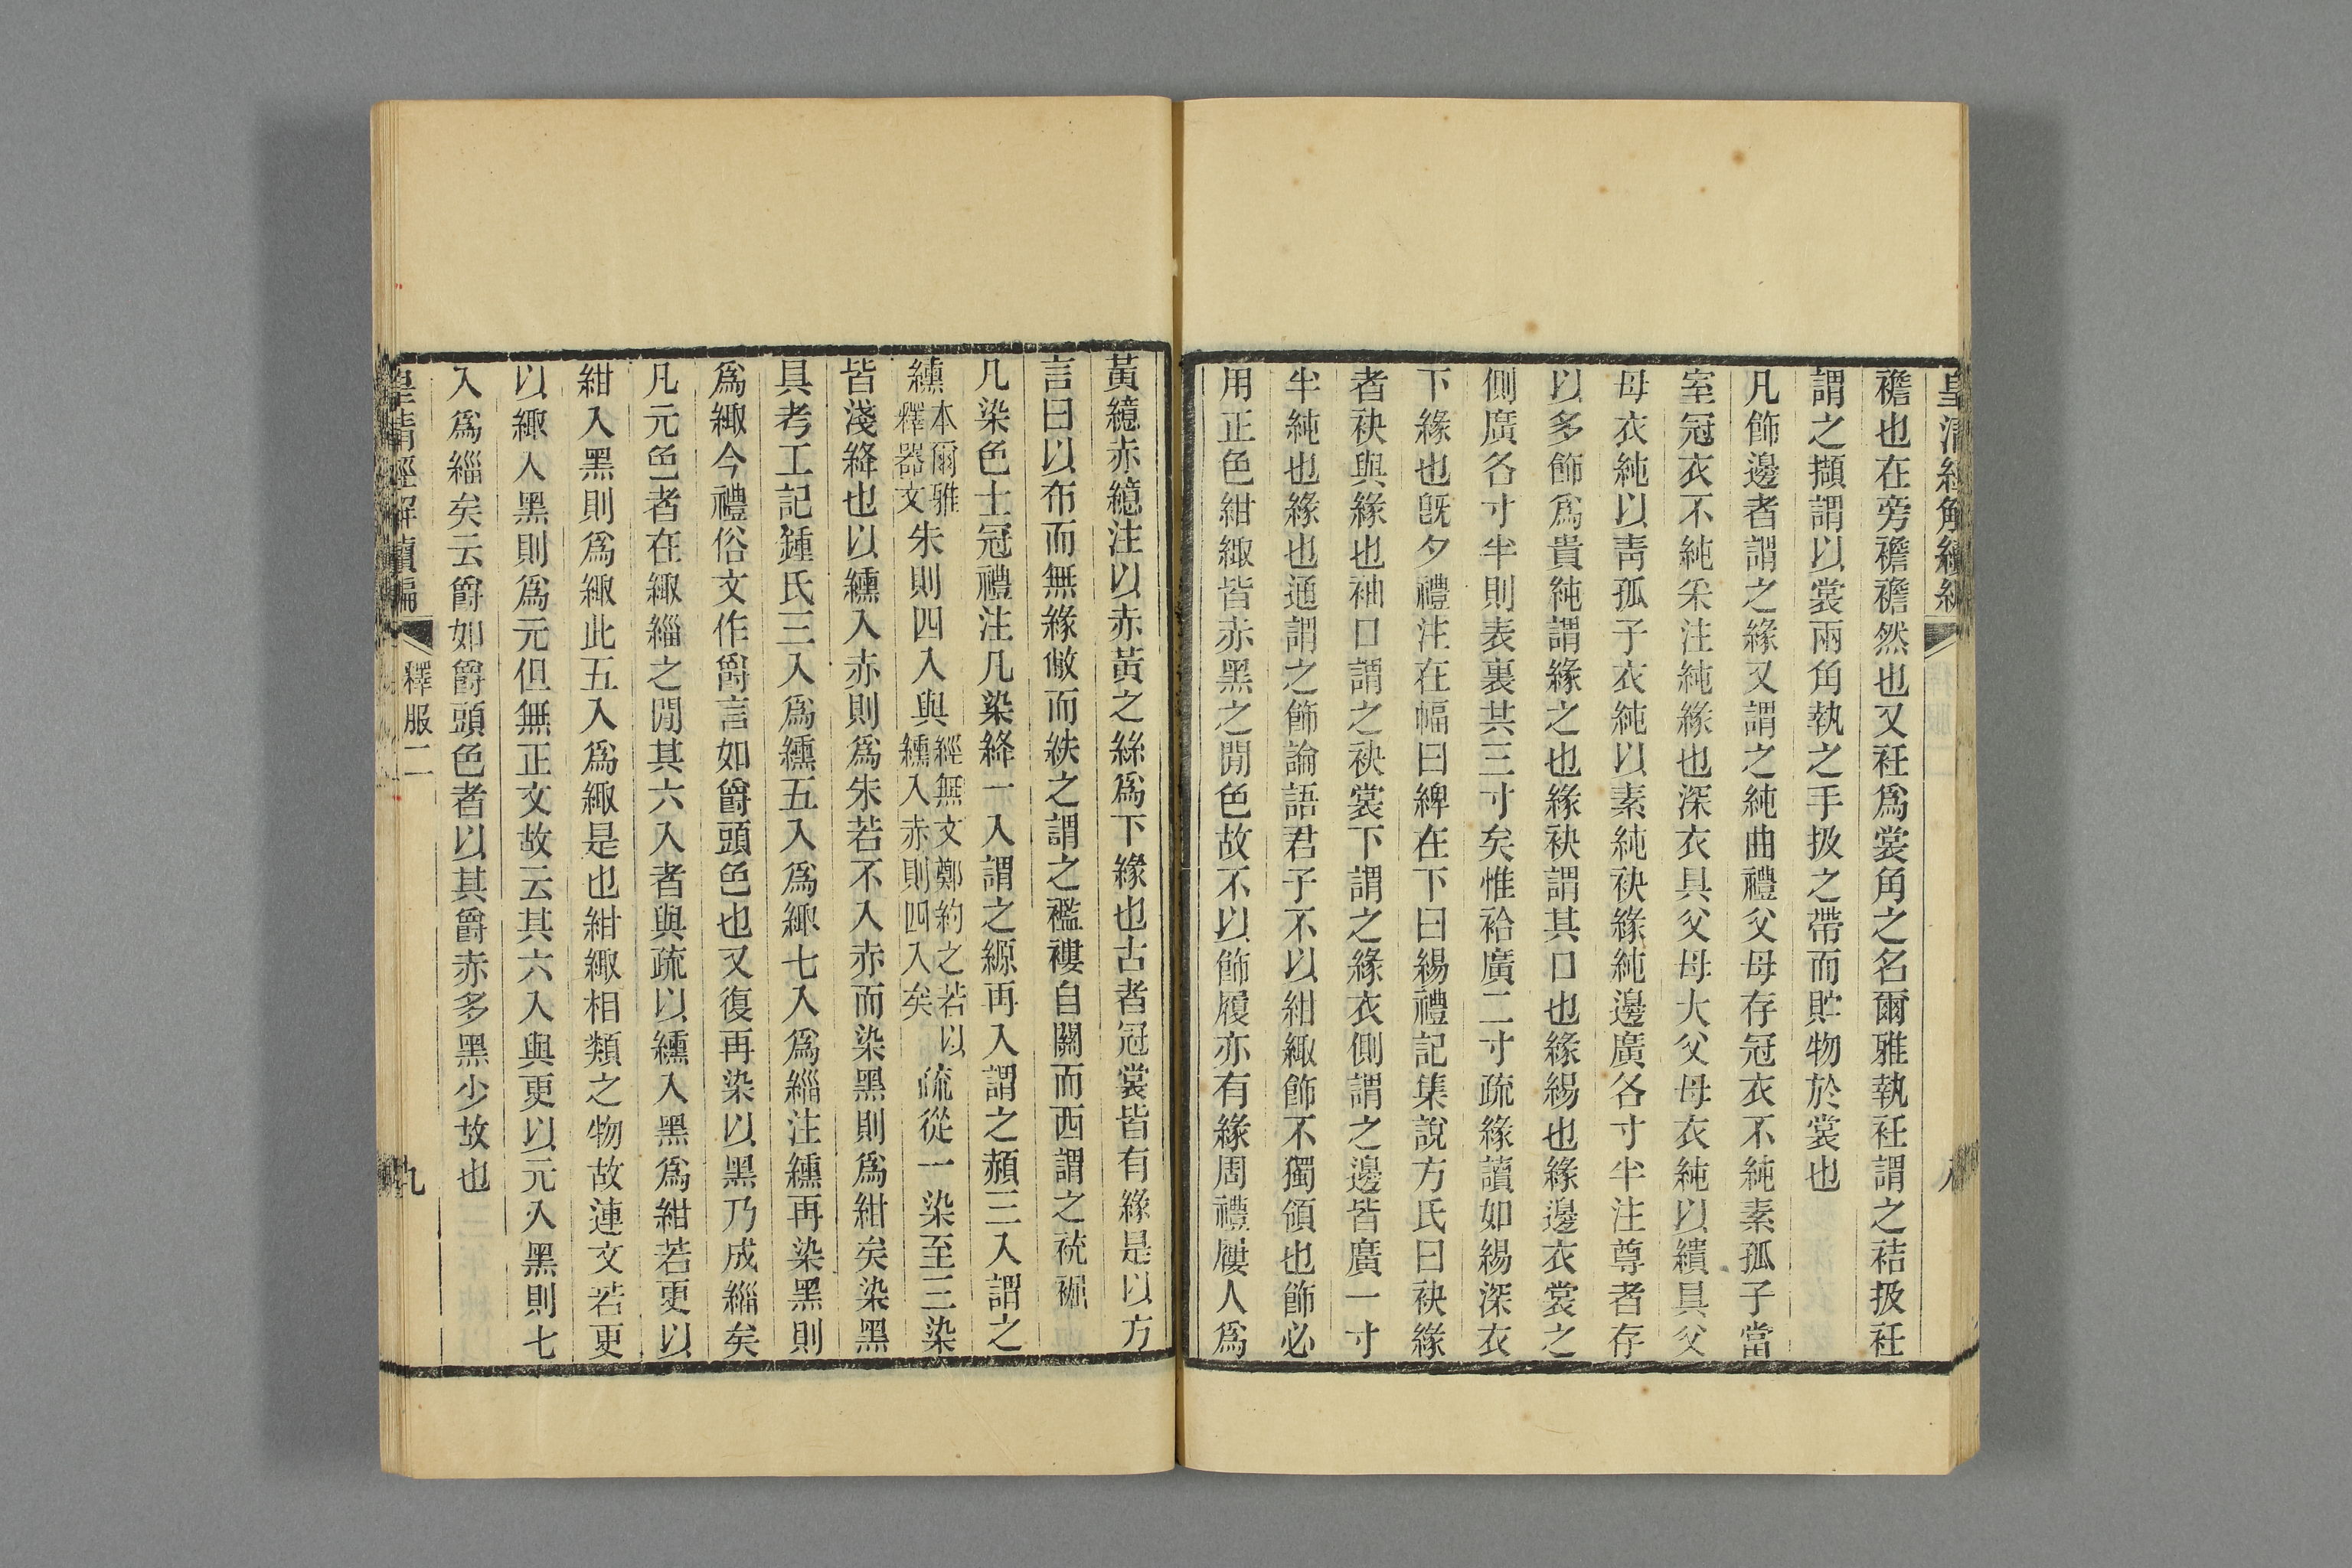 皇清經解續編
襜也在旁襜襜然也又衽爲裳角之名爾雅執衽謂之袺扱衽
謂之擷謂以裳兩角執之手扱之帶而貯物於裳也
凡飾邊者謂之緣又謂之純曲禮父母存冠衣不純素孤子當
室冠衣不純采注純緣也深衣具父母大父母衣純以繢具父
母衣純以靑孤子衣純以素純袂緣純邊廣各寸半注尊者存
以多飾爲貴純謂緣之也緣袂謂其口也緣緆也緣邊衣裳之
側廣各寸半則表裏其三寸矣惟袷廣二寸疏緣讀如緆深衣
下緣也旣夕禮注在幅曰綼在下曰緆禮記集說方氏曰袂緣
者袂與緣也袖口謂之袂裳下謂之緣衣側謂之邊皆廣一寸
半純也緣也通謂之飾論語君子不以紺緅飾不獨領也飾必
用正色紺緅皆赤黑之閒色故不以飾履亦有緣周禮屨人爲
黃繶赤繶注以赤黃之絲爲下緣也古者冠裳皆有緣是以方
言曰以布而無緣敝而紩之謂之襤褸自關而西謂之䘪裾
凡染色士冠禮注凡染絳一入謂之縓再入謂之赬三入謂之
纁本爾雅釋器文朱則四入與經無文鄭約之若以纁入赤則四入矣疏從一染至三染
皆淺絳也以纁入赤則爲朱若不入赤而染黑則爲紺矣染黑
具考工記鍾氏三入爲纁五入爲緅七入爲緇注纁再染黑則
爲緅今禮俗文作爵言如爵頭色也又復再染以黑乃成緇矣
凡元色者在緅緇之閒其六入者與疏以纁入黑爲紺若更以
紺入黑則爲緅此五入爲緅是也紺緅相類之物故連文若更
以緅入黑則爲元但無正文故云其六入與更以元入黑則七
入爲緇矣云爵如爵頭色者以其爵赤多黑少故也
皇清經解續編
釋服二
九